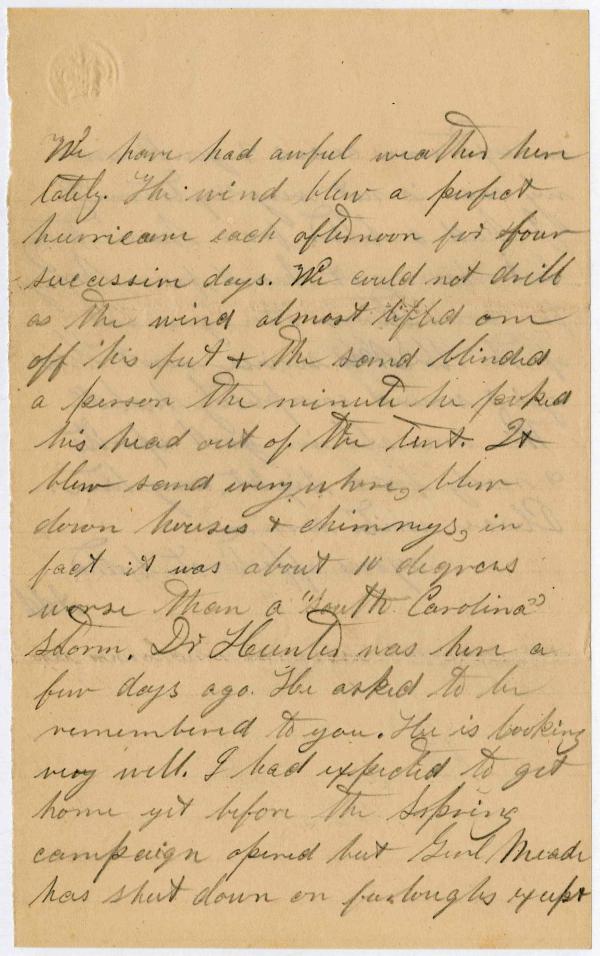 We have had awful weather here
lately. The wind blew a perfect
hurricane each afternoon for four
successive days. We could not drill
as the wind almost lifted one
off his feet & the sand blinded
a person the minute he poked
his head out of the tent. It
blew sand everywhere, blew
down houses & chimneys, in
fact it was about 10 degrees
worse than a "South Carolina"
storm. Dr Hunter was here a
few days ago. He asked to be
remembered to you. He is looking
very well. I had expected to get
home yet before the Spring
campaign opened but Genl Meade
has shut down on furloughs except